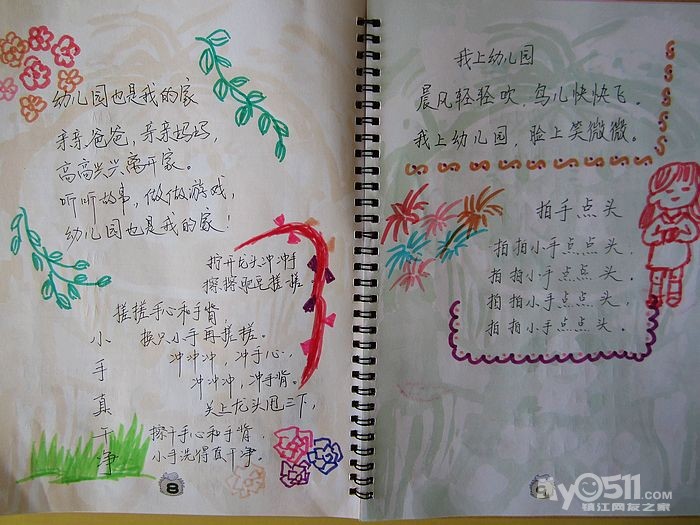 幼儿园也是我的家
亲亲爸爸,亲亲妈妈,
高高兴兴离开家。
听听故事,做做游戏,
幼儿园也是我的家!
拧开龙头冲冲手
擦擦肥皂搓搓
搓搓手心和手背,
换只小手再搓搓。
冲冲冲,冲手心,
冲冲冲,冲手背。
关上龙头甩三下,
擦干手心和手背,
小手洗得真干净。
小手真干净
8
我上幼儿园
晨风轻轻吹,鸟儿快快飞。
我上幼儿园,脸上笑微微。
拍手点头
拍拍小手点点头、
拍拍小手点点头、
拍拍小手点点头,
拍拍小手点点头。
my0511.com
镇江网友之家